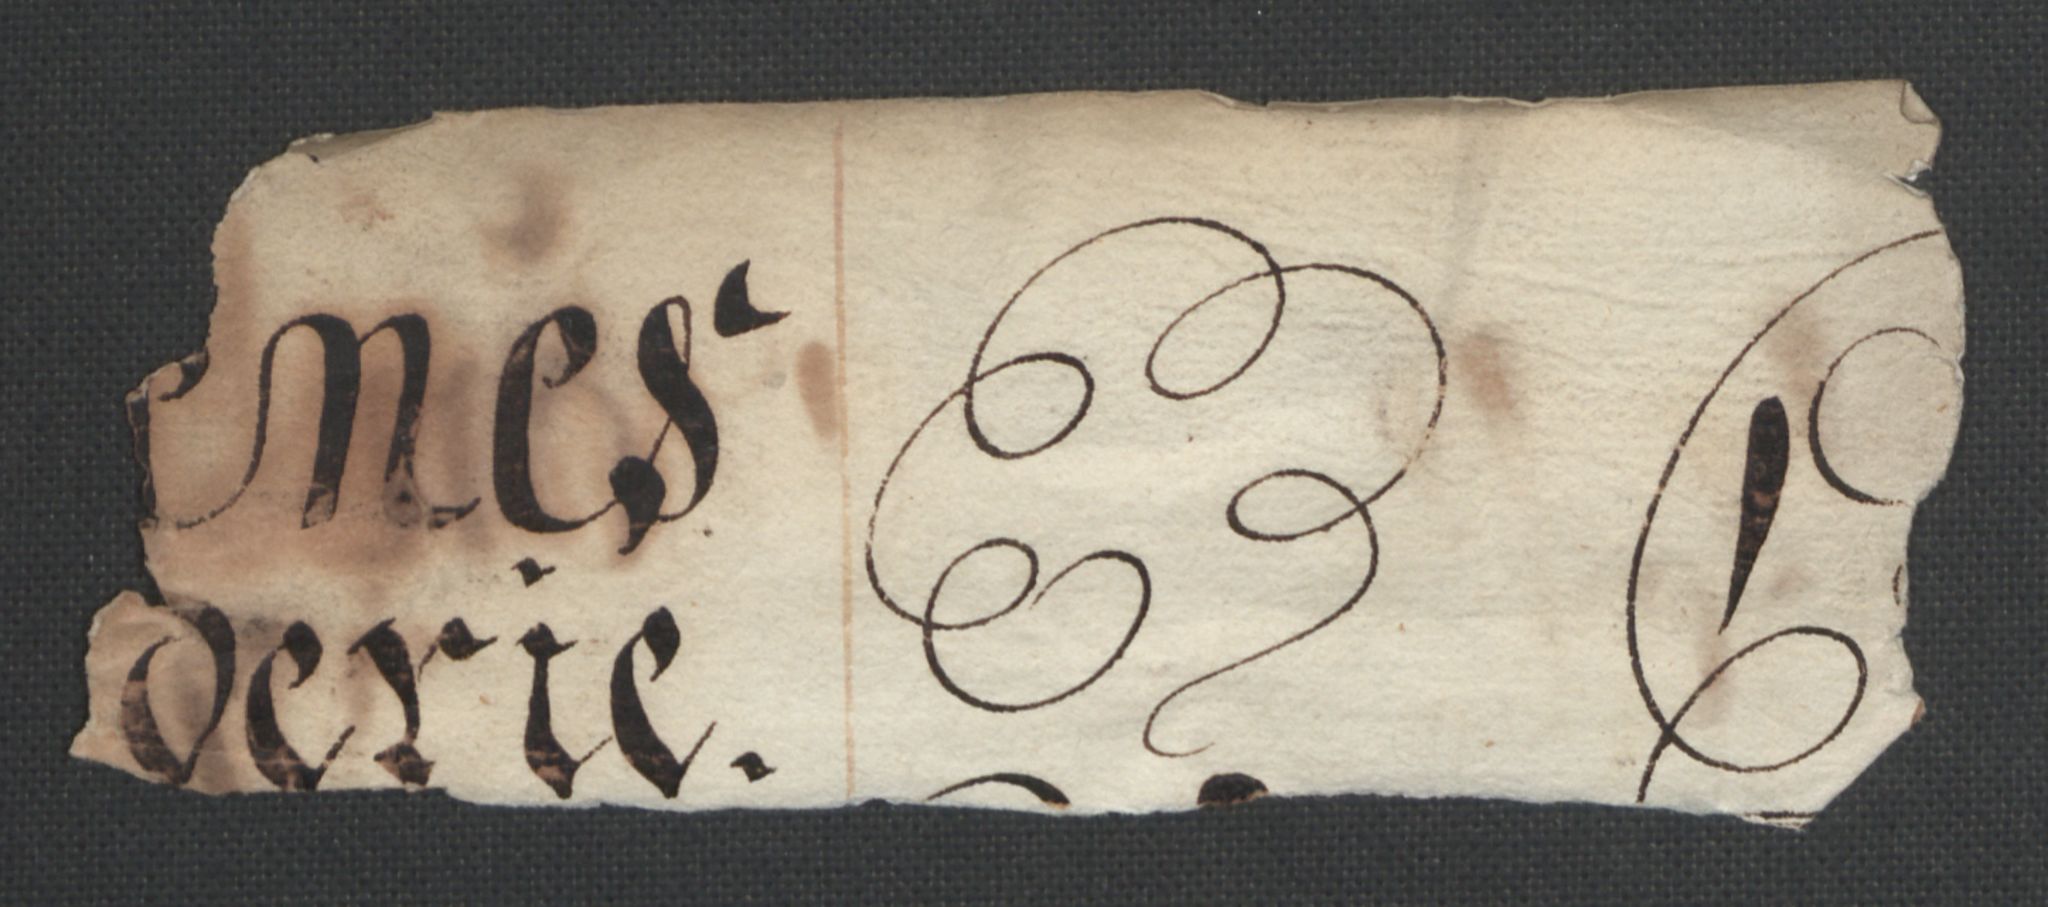 mes
derie.